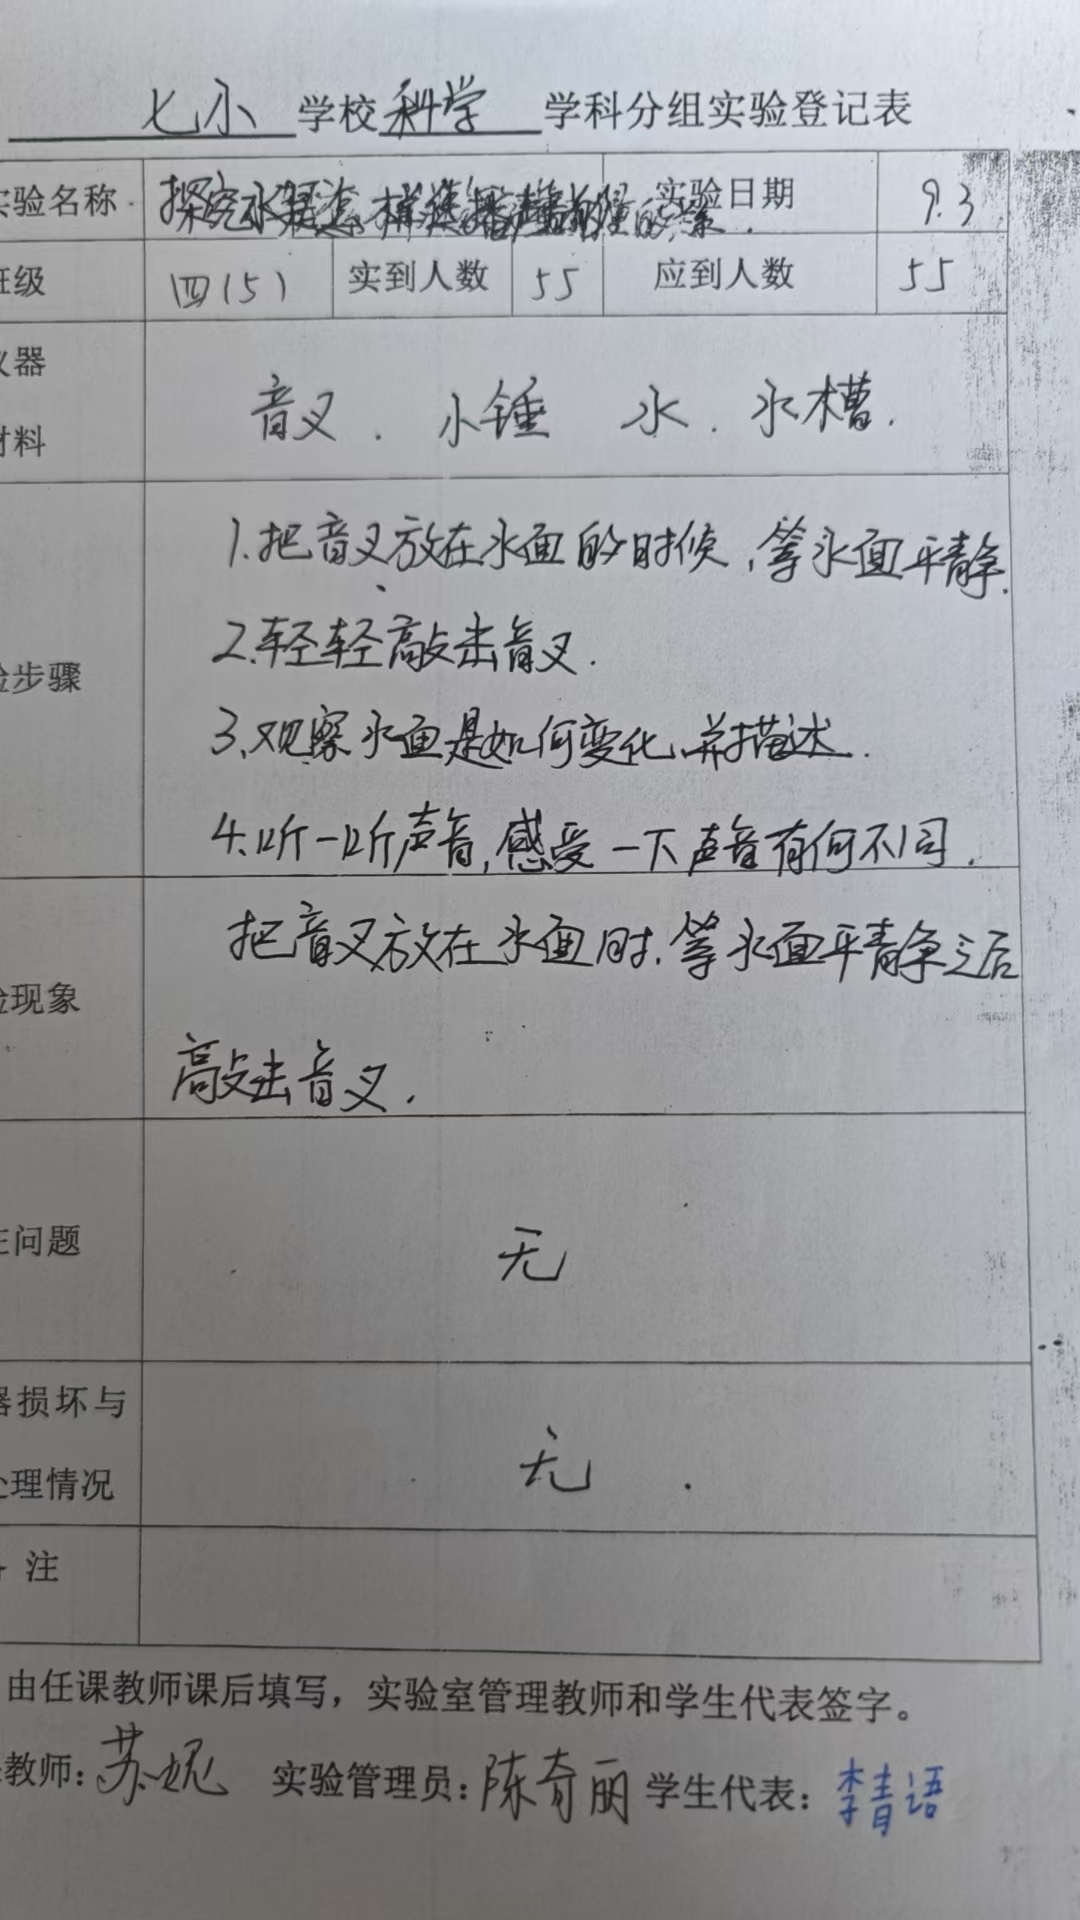 七小 学校 科学 学科分组实验登记表
实验名称 探究水是怎样传播声音的 实验日期 9.3
班级 四(5) 实到人数 55 应到人数 55
仪器 材料 音叉. 小锤 水. 水槽.
1.把音叉放在水面的时候,等水面平静.
2.轻轻敲击音叉.
验步骤
3.观察水面是如何变化,并描述.
4.听一听声音,感受一下声音有何不同.
把音叉放在水面时.等水面平静之后
验现象
敲击音叉.
在问题 无
器损坏与
处理情况 无.
注
由任课教师课后填写，实验室管理教师和学生代表签字。
教师: 苏妮 实验管理员: 陈奇丽 学生代表: 李青语